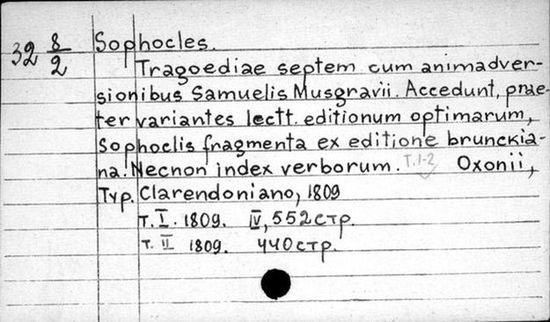 32 8/2 Sophocles.
Tragoediae septem cum animadver-
sionibus Samuelis Musgravii. Accedunt, prae-
ter variantes lectt. editionum optimarum,
Sophoclis fragmenta ex editione brunckia-
na. Necnon index verborum. T.1-2 Oxonii,
Typ. Clarendoniano, 1809
т. I. 1809. IV, 552 стр.
т. II 1809. 440 стр.